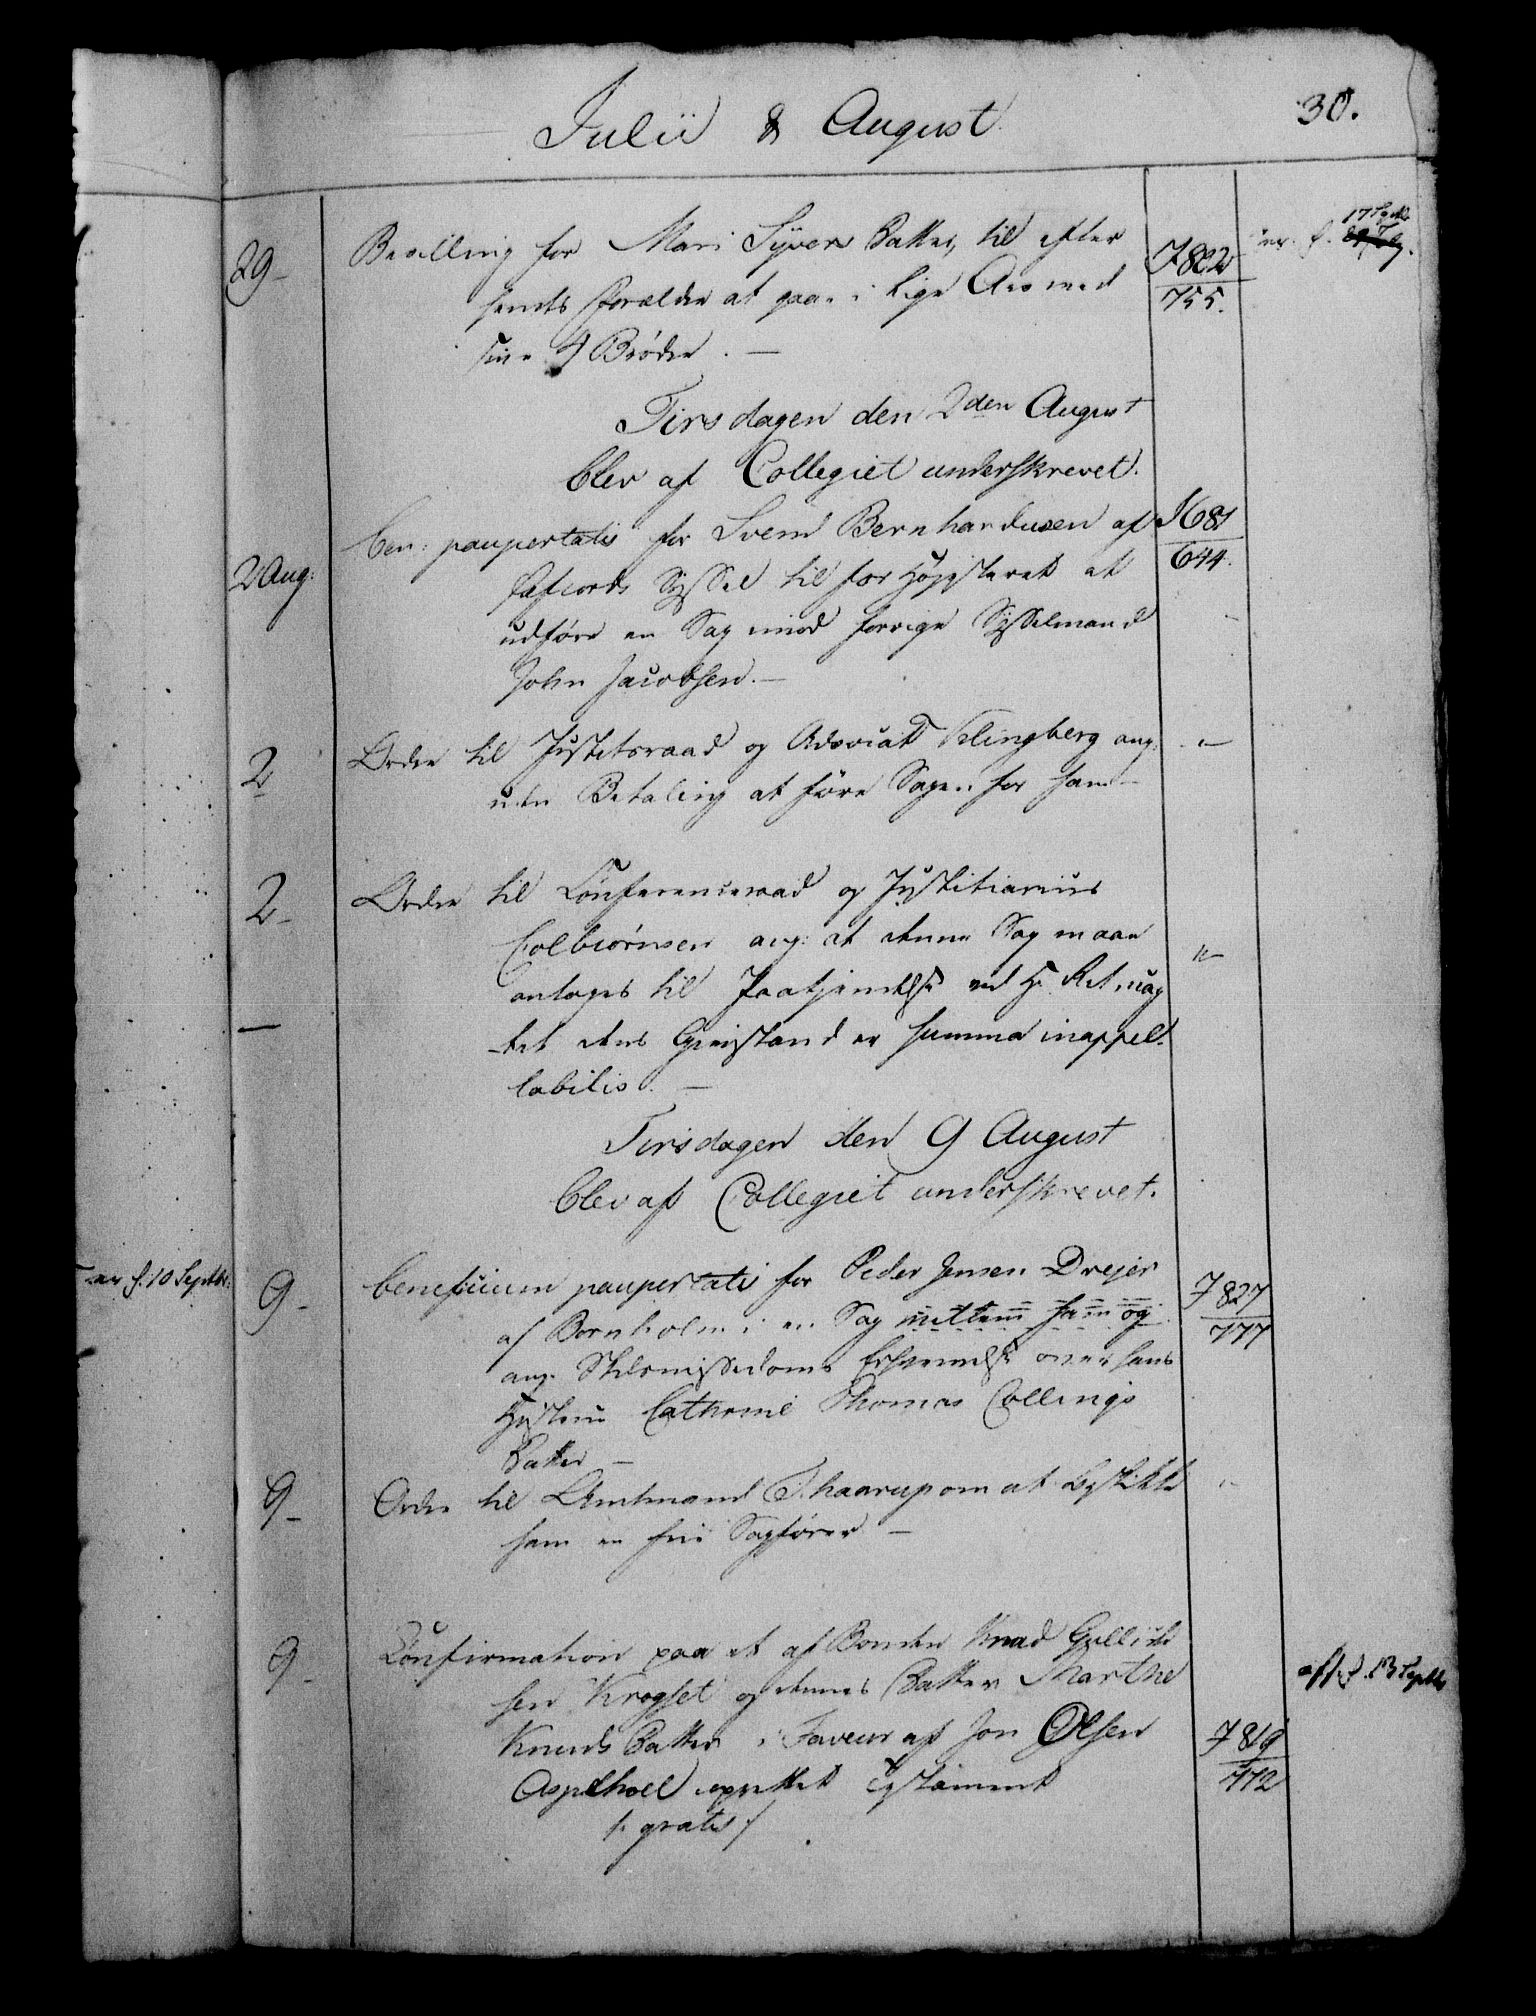 Julii & August
30.
29 – Bevilling for Mari Syvers Datter, til efter
hendes Forældre at gaae i lige Arv med
sine 4 Brødre. –
J 802
755.
17 Septbr
Tirsdagen den 2den August
blev af Collegiet underskrevet.
2 Aug: ben: paupertatis for Svend Bernhardusen af
Syssel til for Høyesteret at
udføre en Sag imod forrige Sysselmand
John Jacobsen. –
J 681
644.
2 Ordre til Justitsraad og Advocat Klingberg ang:
uden Betaling at føre Sagen for ham –
"–
2 – Ordre til Conferenceraad og Justitiarius
Colbiørnsen ang: at denne Sag maae
antages til Paakjendelse ved H: Ret, uag
tet dens Gienstand er summa inappel-
labilis. –
"–
Tirsdagen den 9 August
blev af Collegiet underskrevet.
er f. 10 Septbr:
9 – beneficium paupertatis for Peder Jensen Drejer
af Bornholm i en Sag mellem ham og
ang: Skilsmissedoms Erhvervelse over hans
Hustrue Cathrine Thomas Collings
Datter –
J 827
777
9 – Ordre til Amtmand Thaarup om at beskikke
ham en frie Sagfører –
"–
9 – Confirmation paa et af Bonden Knud Gullich
sen Krogset og dennes Datter Marthe
Knuds Datter i Faveur af Jon Olsen
Aspehoel oprettet Testament
/: gratis /
J 819
772
aff: f. 13 Septbr